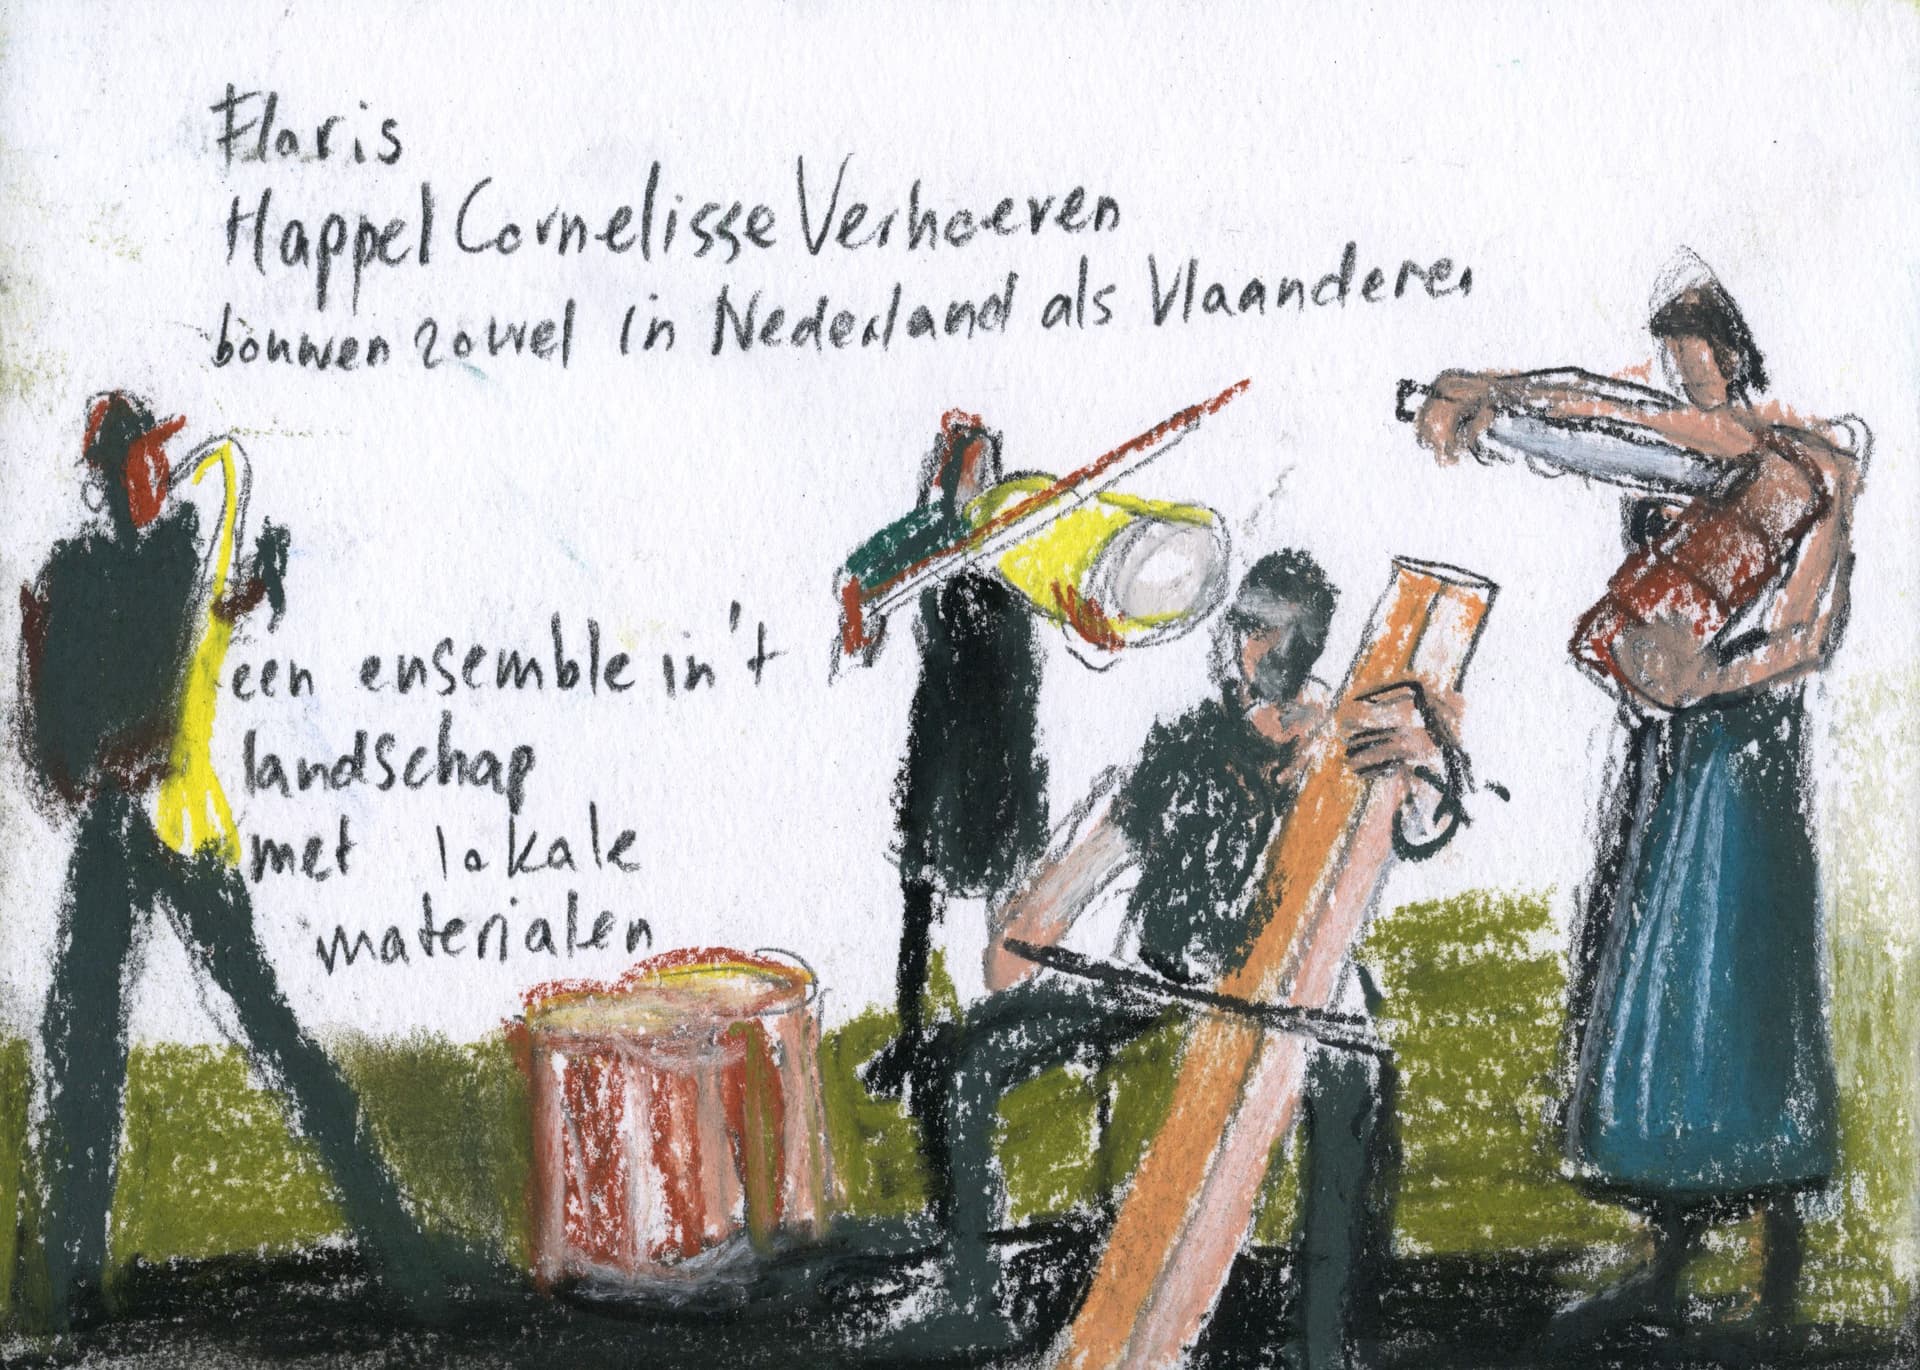 Floris
Happel Cornelisse Verhoeven
bouwen zowel in Nederland als Vlaanderen
een ensemble in 't
landschap
met lokale
materialen